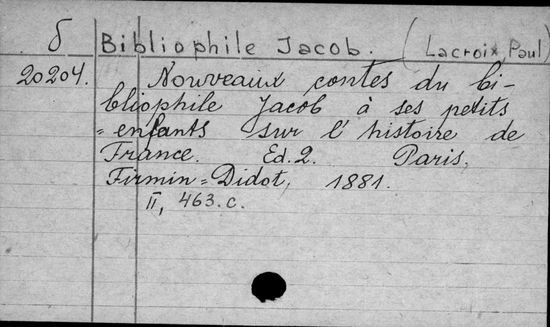 б Bibliophile Jacob. (Lacroix, Paul)
20204. Nouveaux contes du bi-
bliophile Jacob à ses petits
=enfants sur l'histoire de
France. Ed. 2. Paris,
Firmin=Didot, 1881.
II, 463. c.